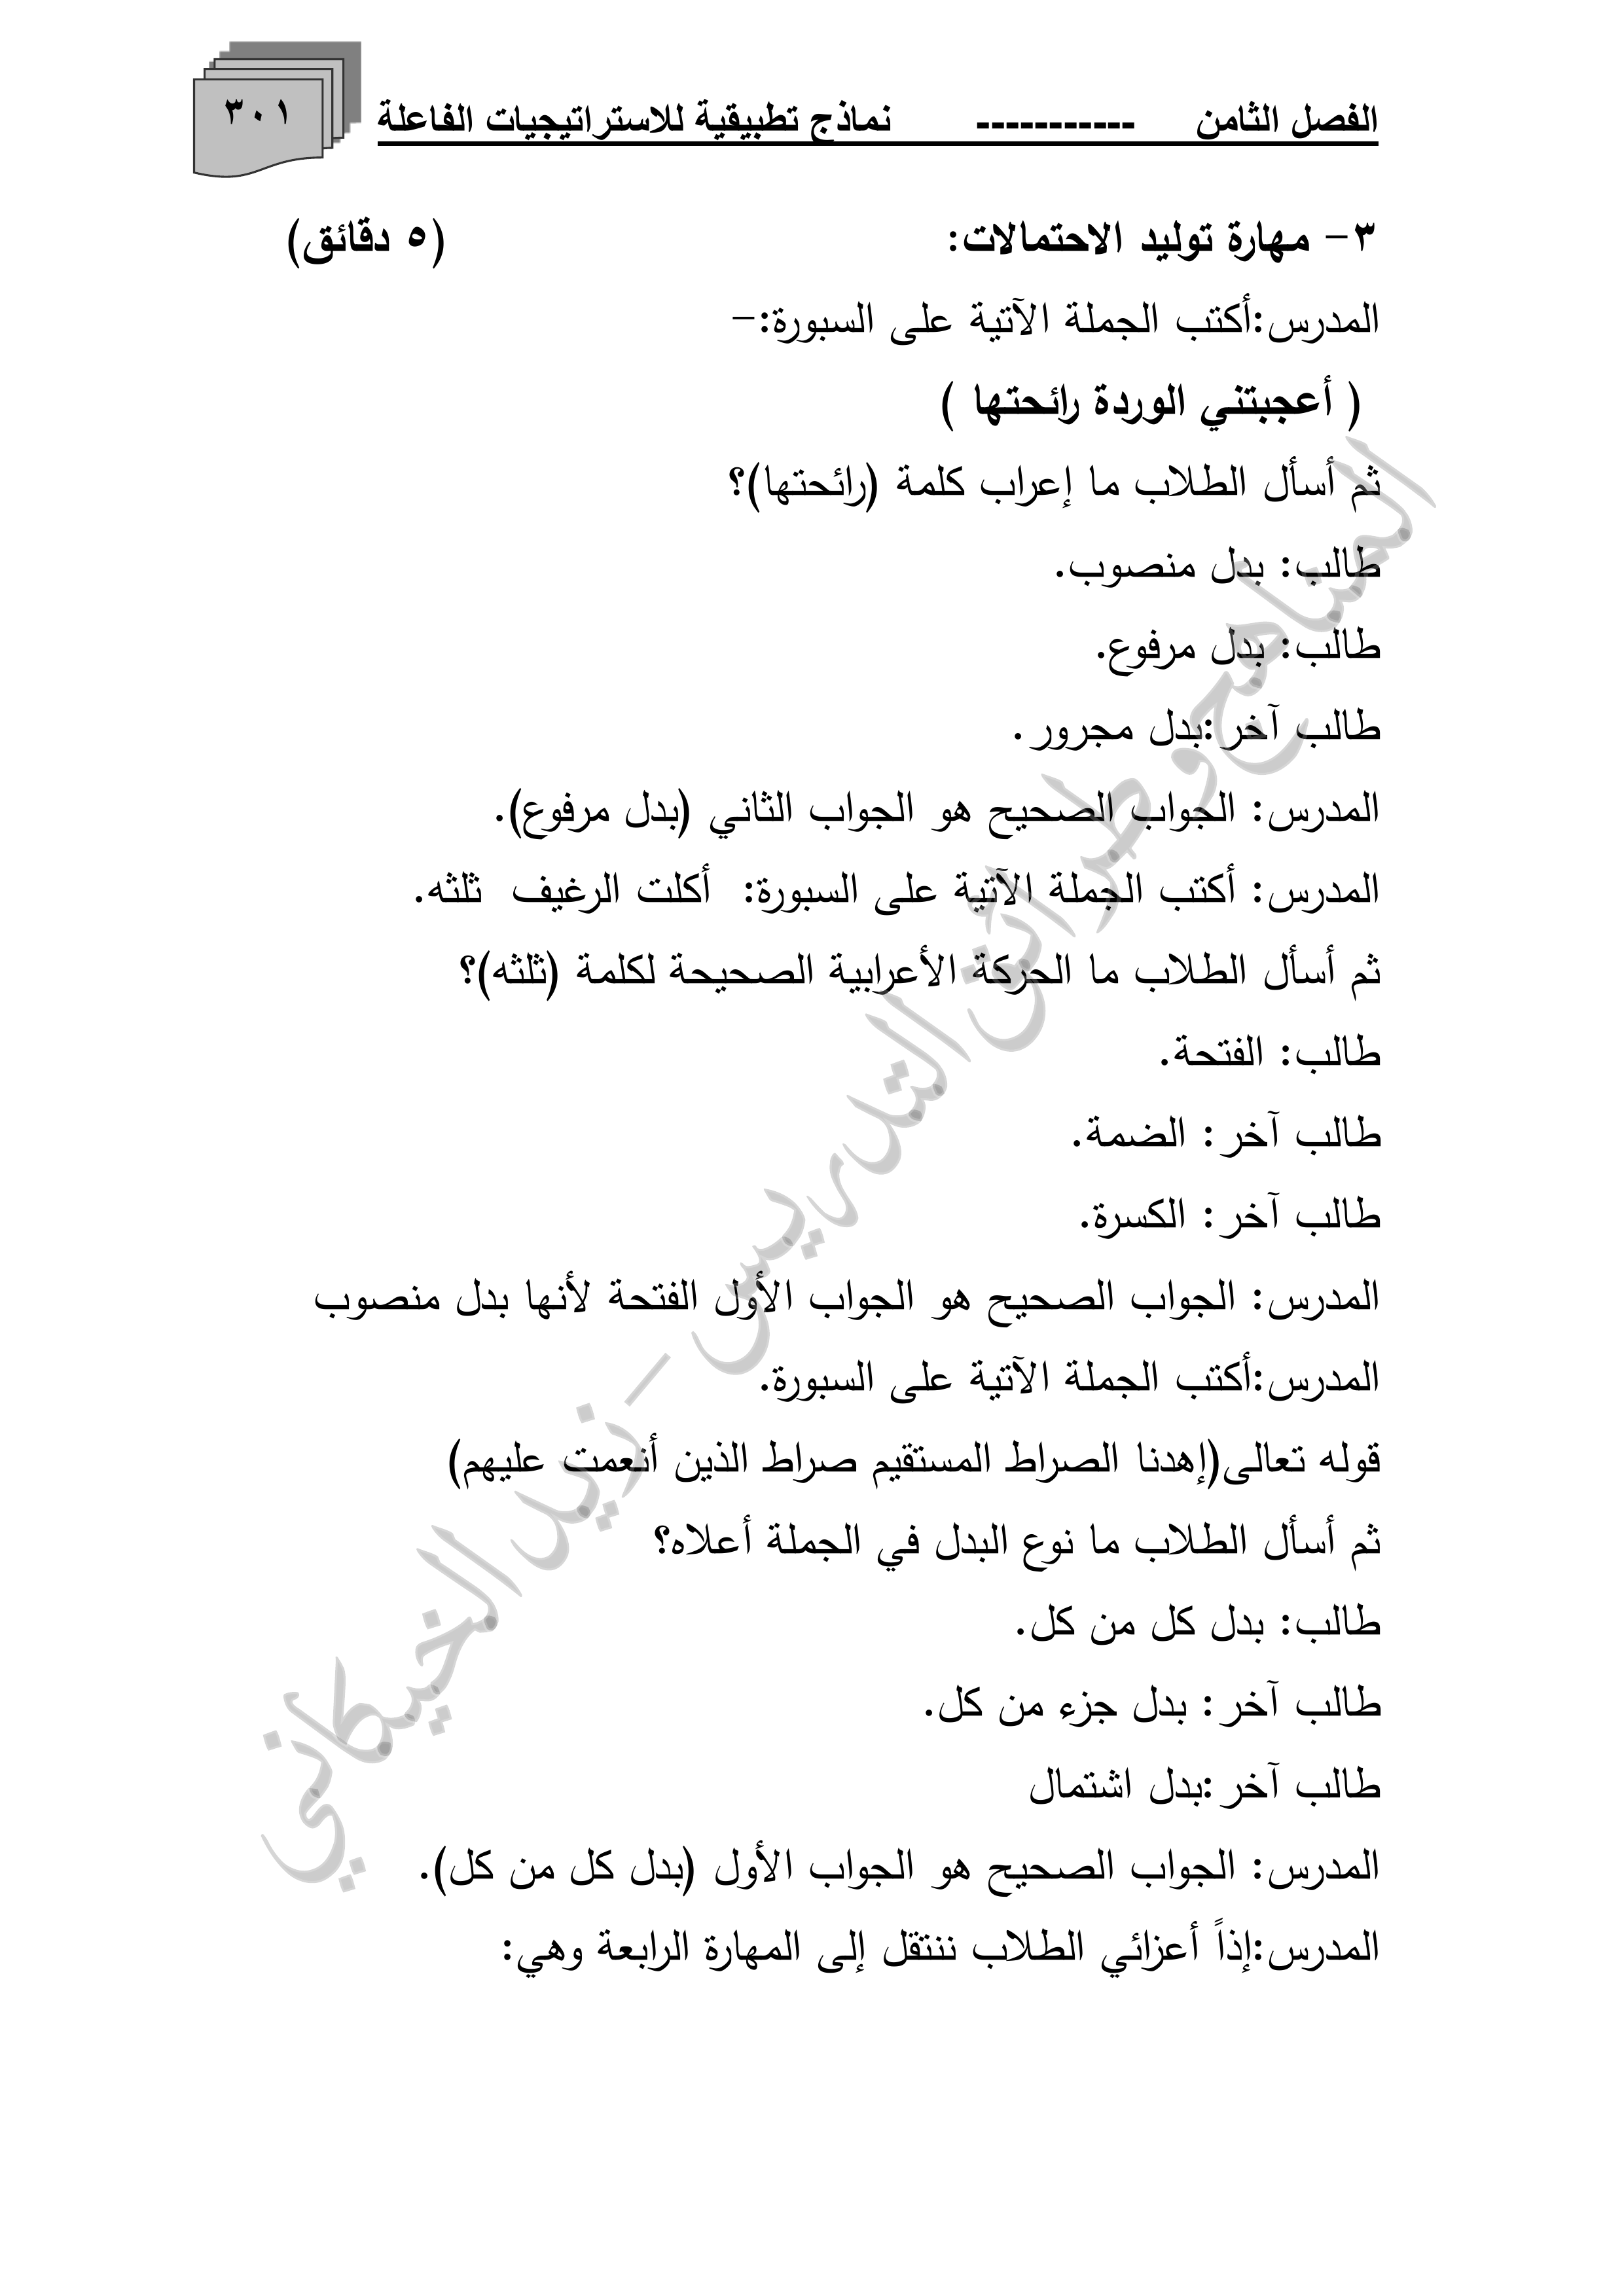 الفصل الثامن ----------- نماذج تطبيقية للاستراتيجيات الفاعلة ٣٠١
٣- مهارة توليد الاحتمالات: (٥ دقائق)
المدرس:أكتب الجملة الآتية على السبورة:-
( أعجبتني الوردة رائحتها )
ثم أسأل الطلاب ما إعراب كلمة (رائحتها)؟
طالب: بدل منصوب.
طالب: بدل مرفوع.
طالب آخر:بدل مجرور.
المدرس: الجواب الصحيح هو الجواب الثاني (بدل مرفوع).
المدرس: أكتب الجملة الآتية على السبورة: أكلت الرغيف ثلثه.
ثم أسأل الطلاب ما الحركة الأعرابية الصحيحة لكلمة (ثلثه)؟
طالب: الفتحة.
طالب آخر: الضمة.
طالب آخر: الكسرة.
المدرس: الجواب الصحيح هو الجواب الأول الفتحة لأنها بدل منصوب
المدرس:أكتب الجملة الآتية على السبورة.
قوله تعالى(إهدنا الصراط المستقيم صراط الذين أنعمت عليهم)
ثم أسأل الطلاب ما نوع البدل في الجملة أعلاه؟
طالب: بدل كل من كل.
طالب آخر: بدل جزء من كل.
طالب آخر:بدل اشتمال
المدرس: الجواب الصحيح هو الجواب الأول (بدل كل من كل).
المدرس:إذاً أعزائي الطلاب ننتقل إلى المهارة الرابعة وهي:
المناهج وطرائق التدريس - زيد الخيكاني